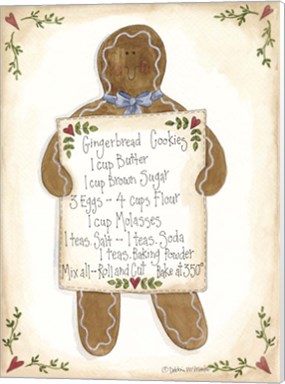 Gingerbread Cookies
1 cup Butter
1 cup Brown Sugar
3 Eggs -- 4 cups Flour
1 cup Molasses
1 teas. Salt -- 1 teas. Soda
1 teas. Baking Powder
Mix all -- Roll and Cut Bake at 350°